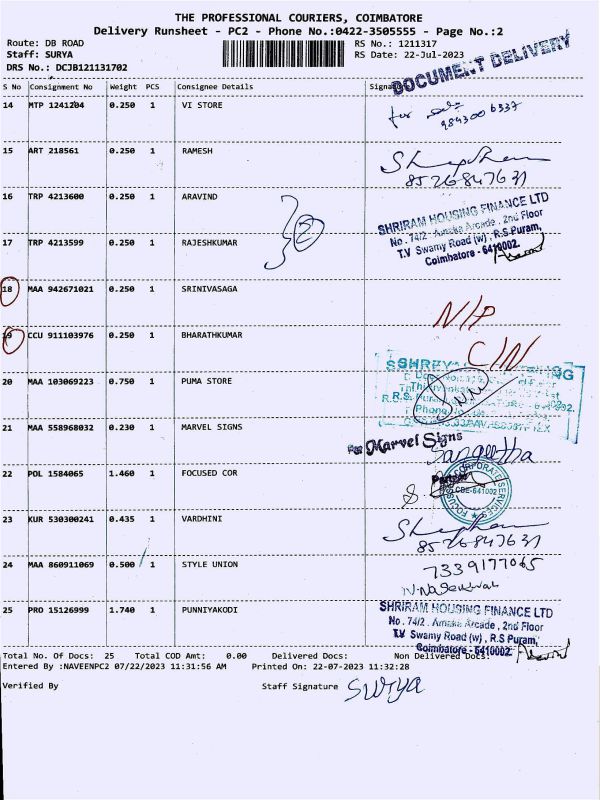 THE PROFESSIONAL COURIERS, COIMBATORE
Delivery Runsheet - PC2 - Phone No.:0422-3505555 - Page No.:2
Route: DB ROAD RS No.: 1211317
Staff: SURYA RS Date: 22-Jul-2023
DRS No.: DCJB121131702
DOCUMENT DELIVERY
S No Consignment No Weight PCS Consignee Details Signa
14 MTP 1241204 0.250 1 VI STORE
for
9843006337
15 ART 218561 0.250 1 RAMESH
8526847631
16 TRP 4213600 0.250 1 ARAVIND
2
SHRIRAM HOUSING FINANCE LTD
No. 74/2. Amaka Arcade, 2nd Floor
T.V Swamy Road (w), R.S Puram,
Coimbatore - 6410002.
17 TRP 4213599 0.250 1 RAJESHKUMAR
18 MAA 942671021 0.250 1 SRINIVASAGA
N/P
19 CCU 911103976 0.250 1 BHARATHKUMAR
C/N
20 MAA 103069223 0.750 1 PUMA STORE
21 MAA 558968032 0.230 1 MARVEL SIGNS
For Marvel Signs
Sangeetha
Partner
22 POL 1584065 1.460 1 FOCUSED COR
CBE-641002
23 KUR 530300241 0.435 1 VARDHINI
8526847631
24 MAA 860911069 0.500 1 STYLE UNION
7339177065
25 PRO 15126999 1.740 1 PUNNIYAKODI
SHRIRAM HOUSING FINANCE LTD
No. 74/2. Amaka Arcade, 2nd Floor
T.V Swamy Road (w), R.S Puram,
Coimbatore - 6410002.
Total No. Of Docs: 25 Total COD Amt: 0.00 Delivered Docs: Non Delivered Docs:
Entered By :NAVEENPC2 07/22/2023 11:31:56 AM Printed On: 22-07-2023 11:32:28
Verified By Staff Signature Surya